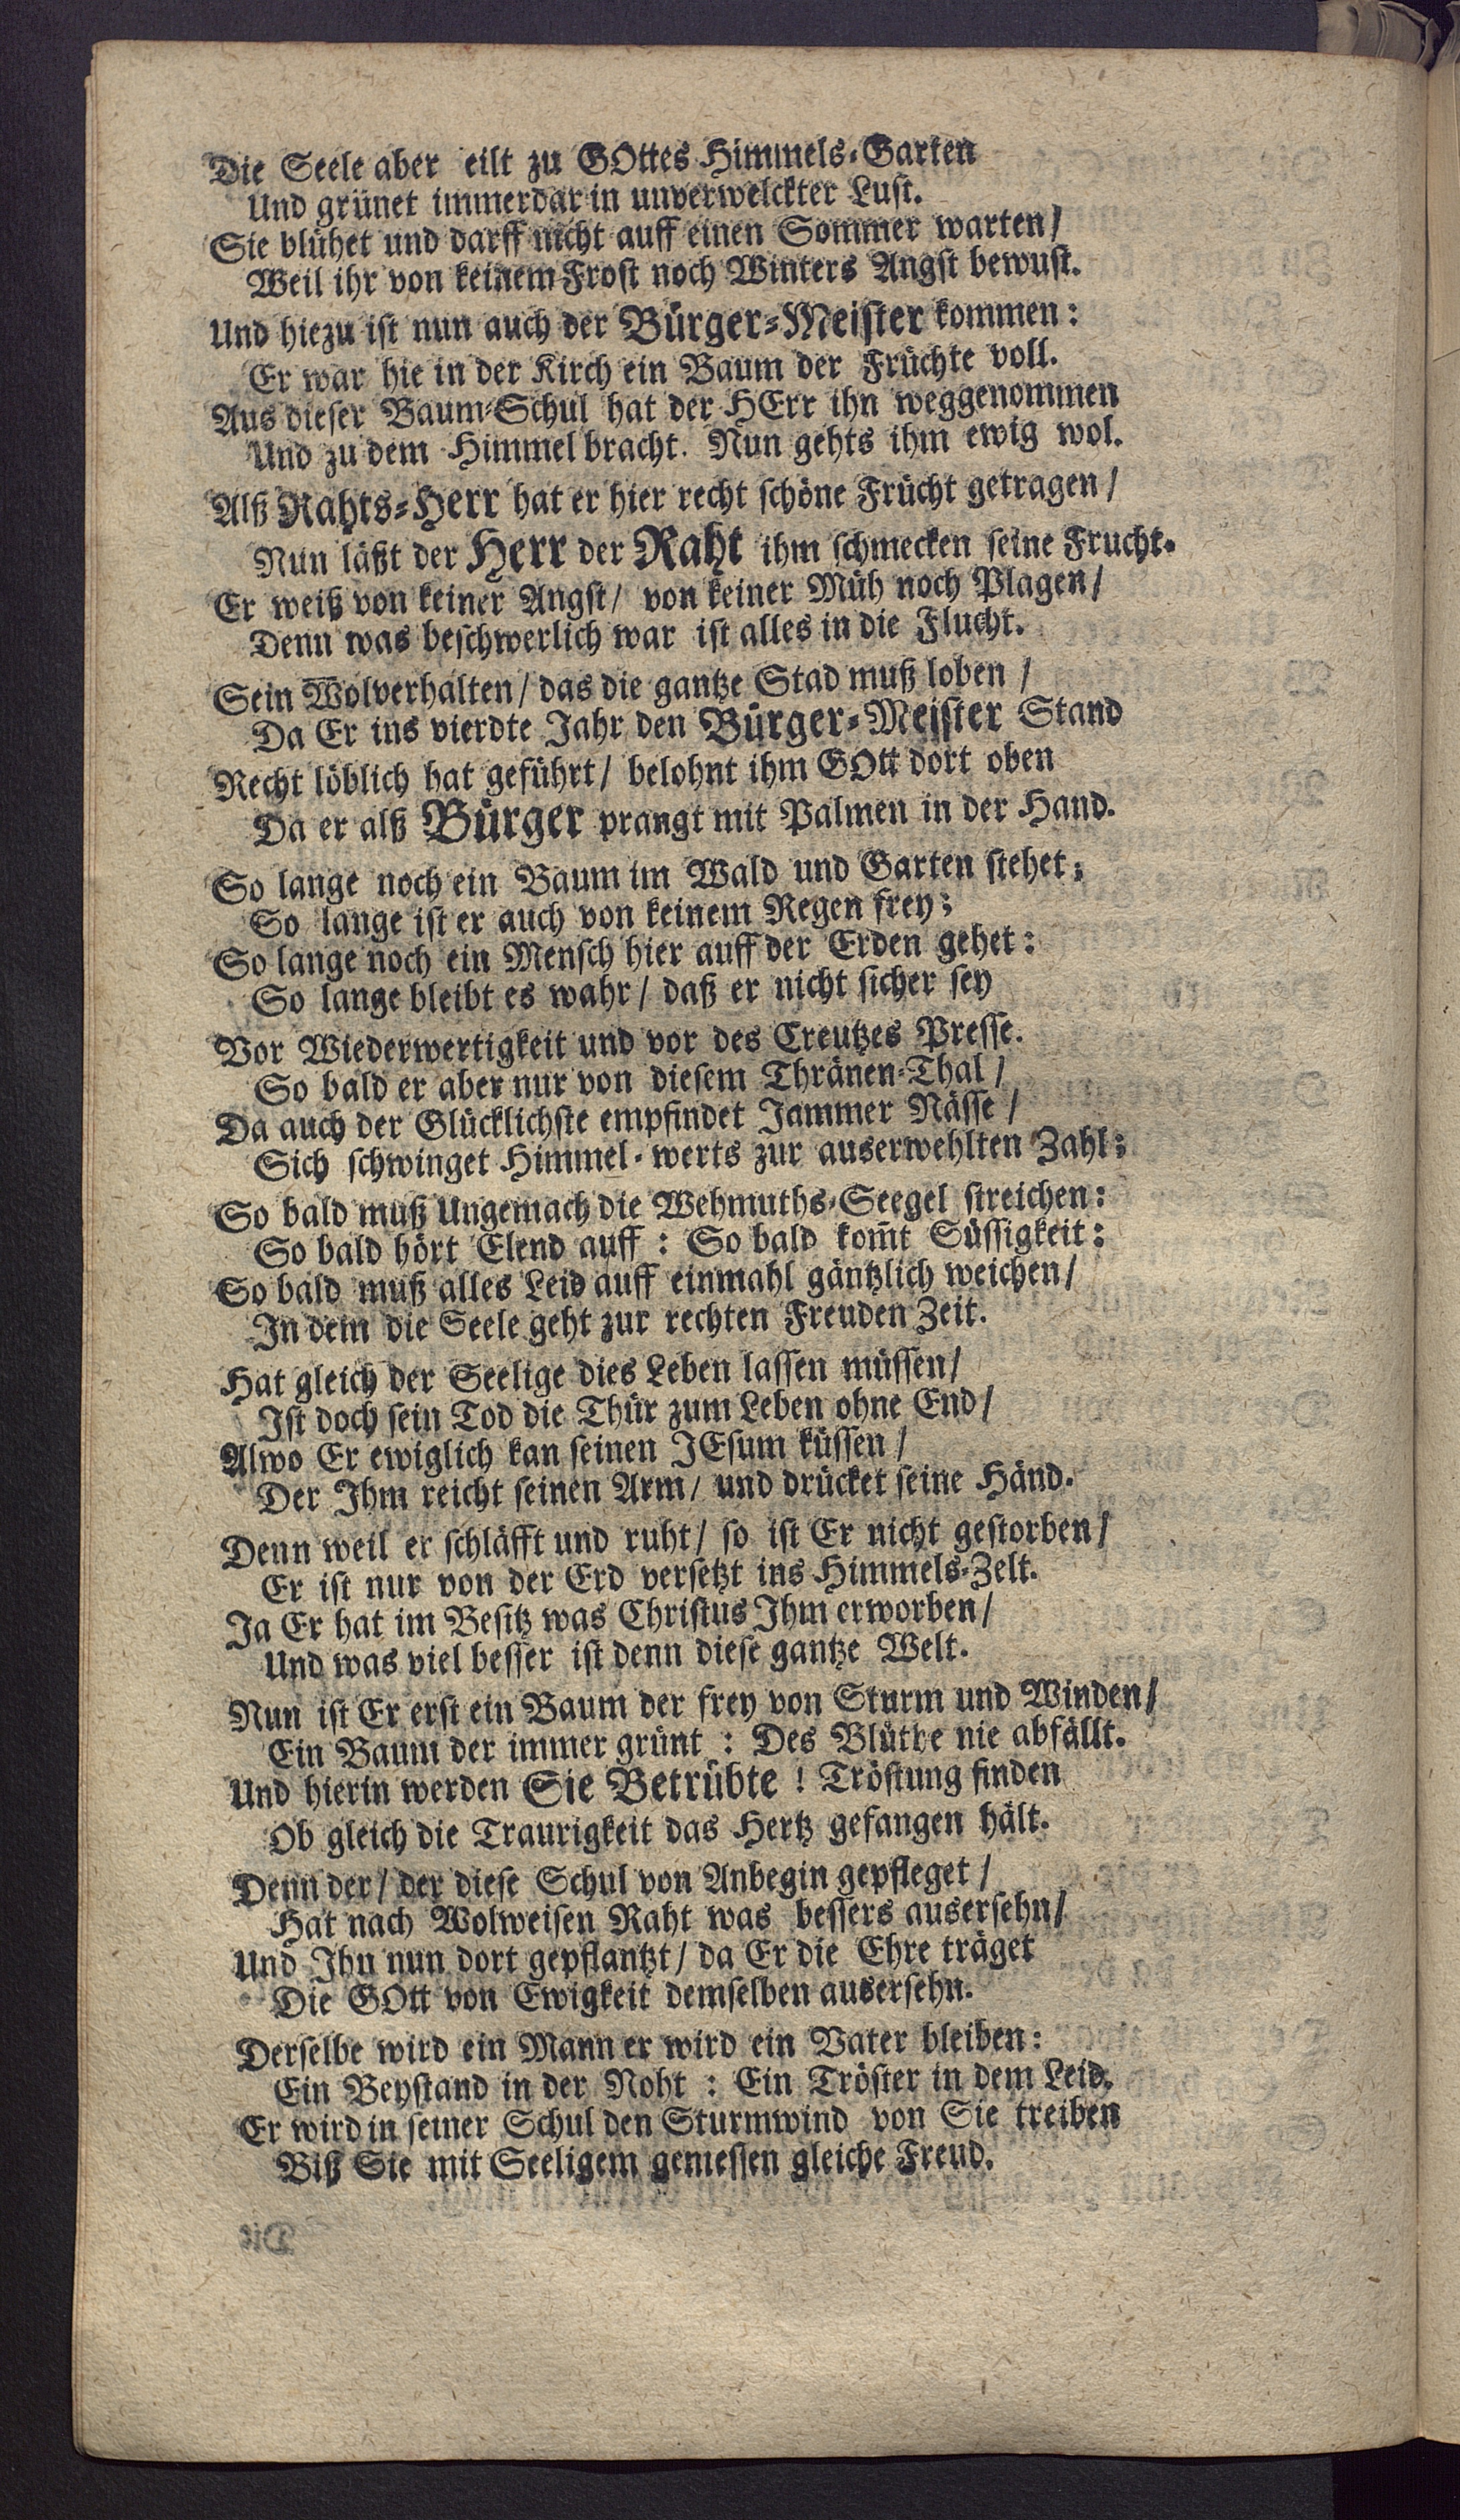 Die Seele aber eilt zu GOttes Himmels-Garten
Und grünet immerdar in unverwelckter Lust.
Sie blühet und darff nicht auff einen Sommer warten/
Weil ihr von keinem Frost noch Winters Angst bewust.
Und hiezu ist nun auch der Bürger-Meister kommen:
Er war hie in der Kirch ein Baum der Früchte voll.
Aus dieser Baum-Schul hat der HErr ihn weggenommen
Und zu dem Himmel bracht. Nun gehts ihm ewig wol.
Alß Rahts-Herr hat er hier recht schöne Frücht getragen/
Nun läßt der Herr der Raht ihm schmecken seine Frucht.
Er weiß von keiner Angst/ von keiner Müh noch Plagen/
Denn was beschwerlich war ist alles in die Flucht.
Sein Wolverhalten/ das die gantze Stad muß loben/
Da Er ins vierdte Jahr den Bürger-Meister Stand
Recht löblich hat geführt/ belohnt ihm GOtt dort oben
Da er alß Bürger prangt mit Palmen in der Hand.
So lange noch ein Baum im Wald und Garten stehet;
So lange ist er auch von keinem Regen frey;
So lange noch ein Mensch hier auff der Erden gehet:
So lange bleibt es wahr/ daß er nicht sicher sey
Vor Wiederwertigkeit und vor des Creutzes Presse.
So bald er aber nur von diesem Thränen-Thal/
Da auch der Glücklichste empfindet Jammer Nässe/
Sich schwinget Himmel-werts zur auserwehlten Zahl;
So bald muß Ungemach die Wehmuths-Seegel streichen:
So bald hört Elend auff: So bald kom̃t Süssigkeit:
So bald muß alles Leid auff einmahl gäntzlich weichen/
In dem die Seele geht zur rechten Freuden Zeit.
Hat gleich der Seelige dies Leben lassen müssen/
Ist doch sein Tod die Thür zum Leben ohne End/
Alwo Er ewiglich kan seinen JEsum küssen/
Der Ihm reicht seinen Arm/ und drücket seine Händ.
Denn weil er schläfft und ruht/ so ist Er nicht gestorben/
Er ist nur von der Erd versetzt ins Himmels-Zelt.
Ja Er hat im Besitz was Christus Ihm erworben/
Und was viel besser ist denn diese gantze Welt.
Nun ist Er erst ein Baum der frey von Sturm und Winden/
Ein Baum der immer grünt: Des Blüthe nie abfällt.
Und hierin werden Sie Betrübte! Tröstung finden
Ob gleich die Traurigkeit das Hertz gefangen hält.
Denn der/ der diese Schul von Anbegin gepfleget/
Hat nach Wolweisen Raht was bessers ausersehn/
Und Ihn nun dort gepflantzt/ da Er die Ehre träget
Die GOtt von Ewigkeit demselben ausersehn.
Derselbe wird ein Mann er wird ein Vater bleiben:
Ein Beystand in der Noht: Ein Tröster in dem Leid.
Er wird in seiner Schul den Sturmwind von Sie treiben
Biß Sie mit Seeligem geniessen gleiche Freud.